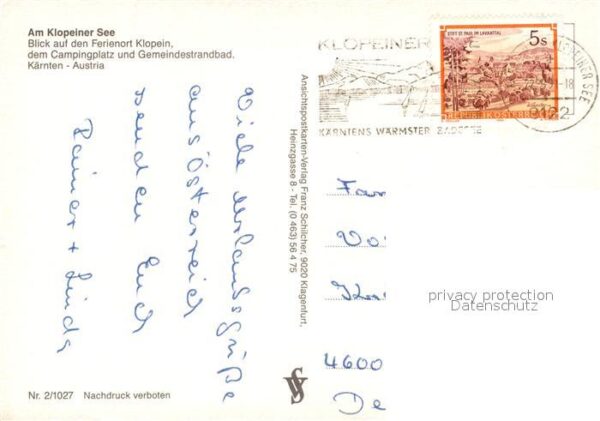 Am Klopeiner See
Blick auf den Ferienort Klopein,
dem Campingplatz und Gemeindestrandbad.
Kärnten - Austria
Viele Urlaubsgrüße
aus Österreich
senden Euch
Rainer + Linda
Nr. 2/1027 Nachdruck verboten
Ansichtspostkarten-Verlag Franz Schilcher, 9020 Klagenfurt,
Heinzgasse 8 - Tel. (0 463) 56 4 75
KLOPEINER
KÄRNTENS WÄRMSTER BADESEE
STIFT ST. PAUL IM LAVANTTAL
5s
REPUBLIK ÖSTERREICH
KLOPEINER SEE
-18
Fam
Vo
4600
De
privacy protection
Datenschutz